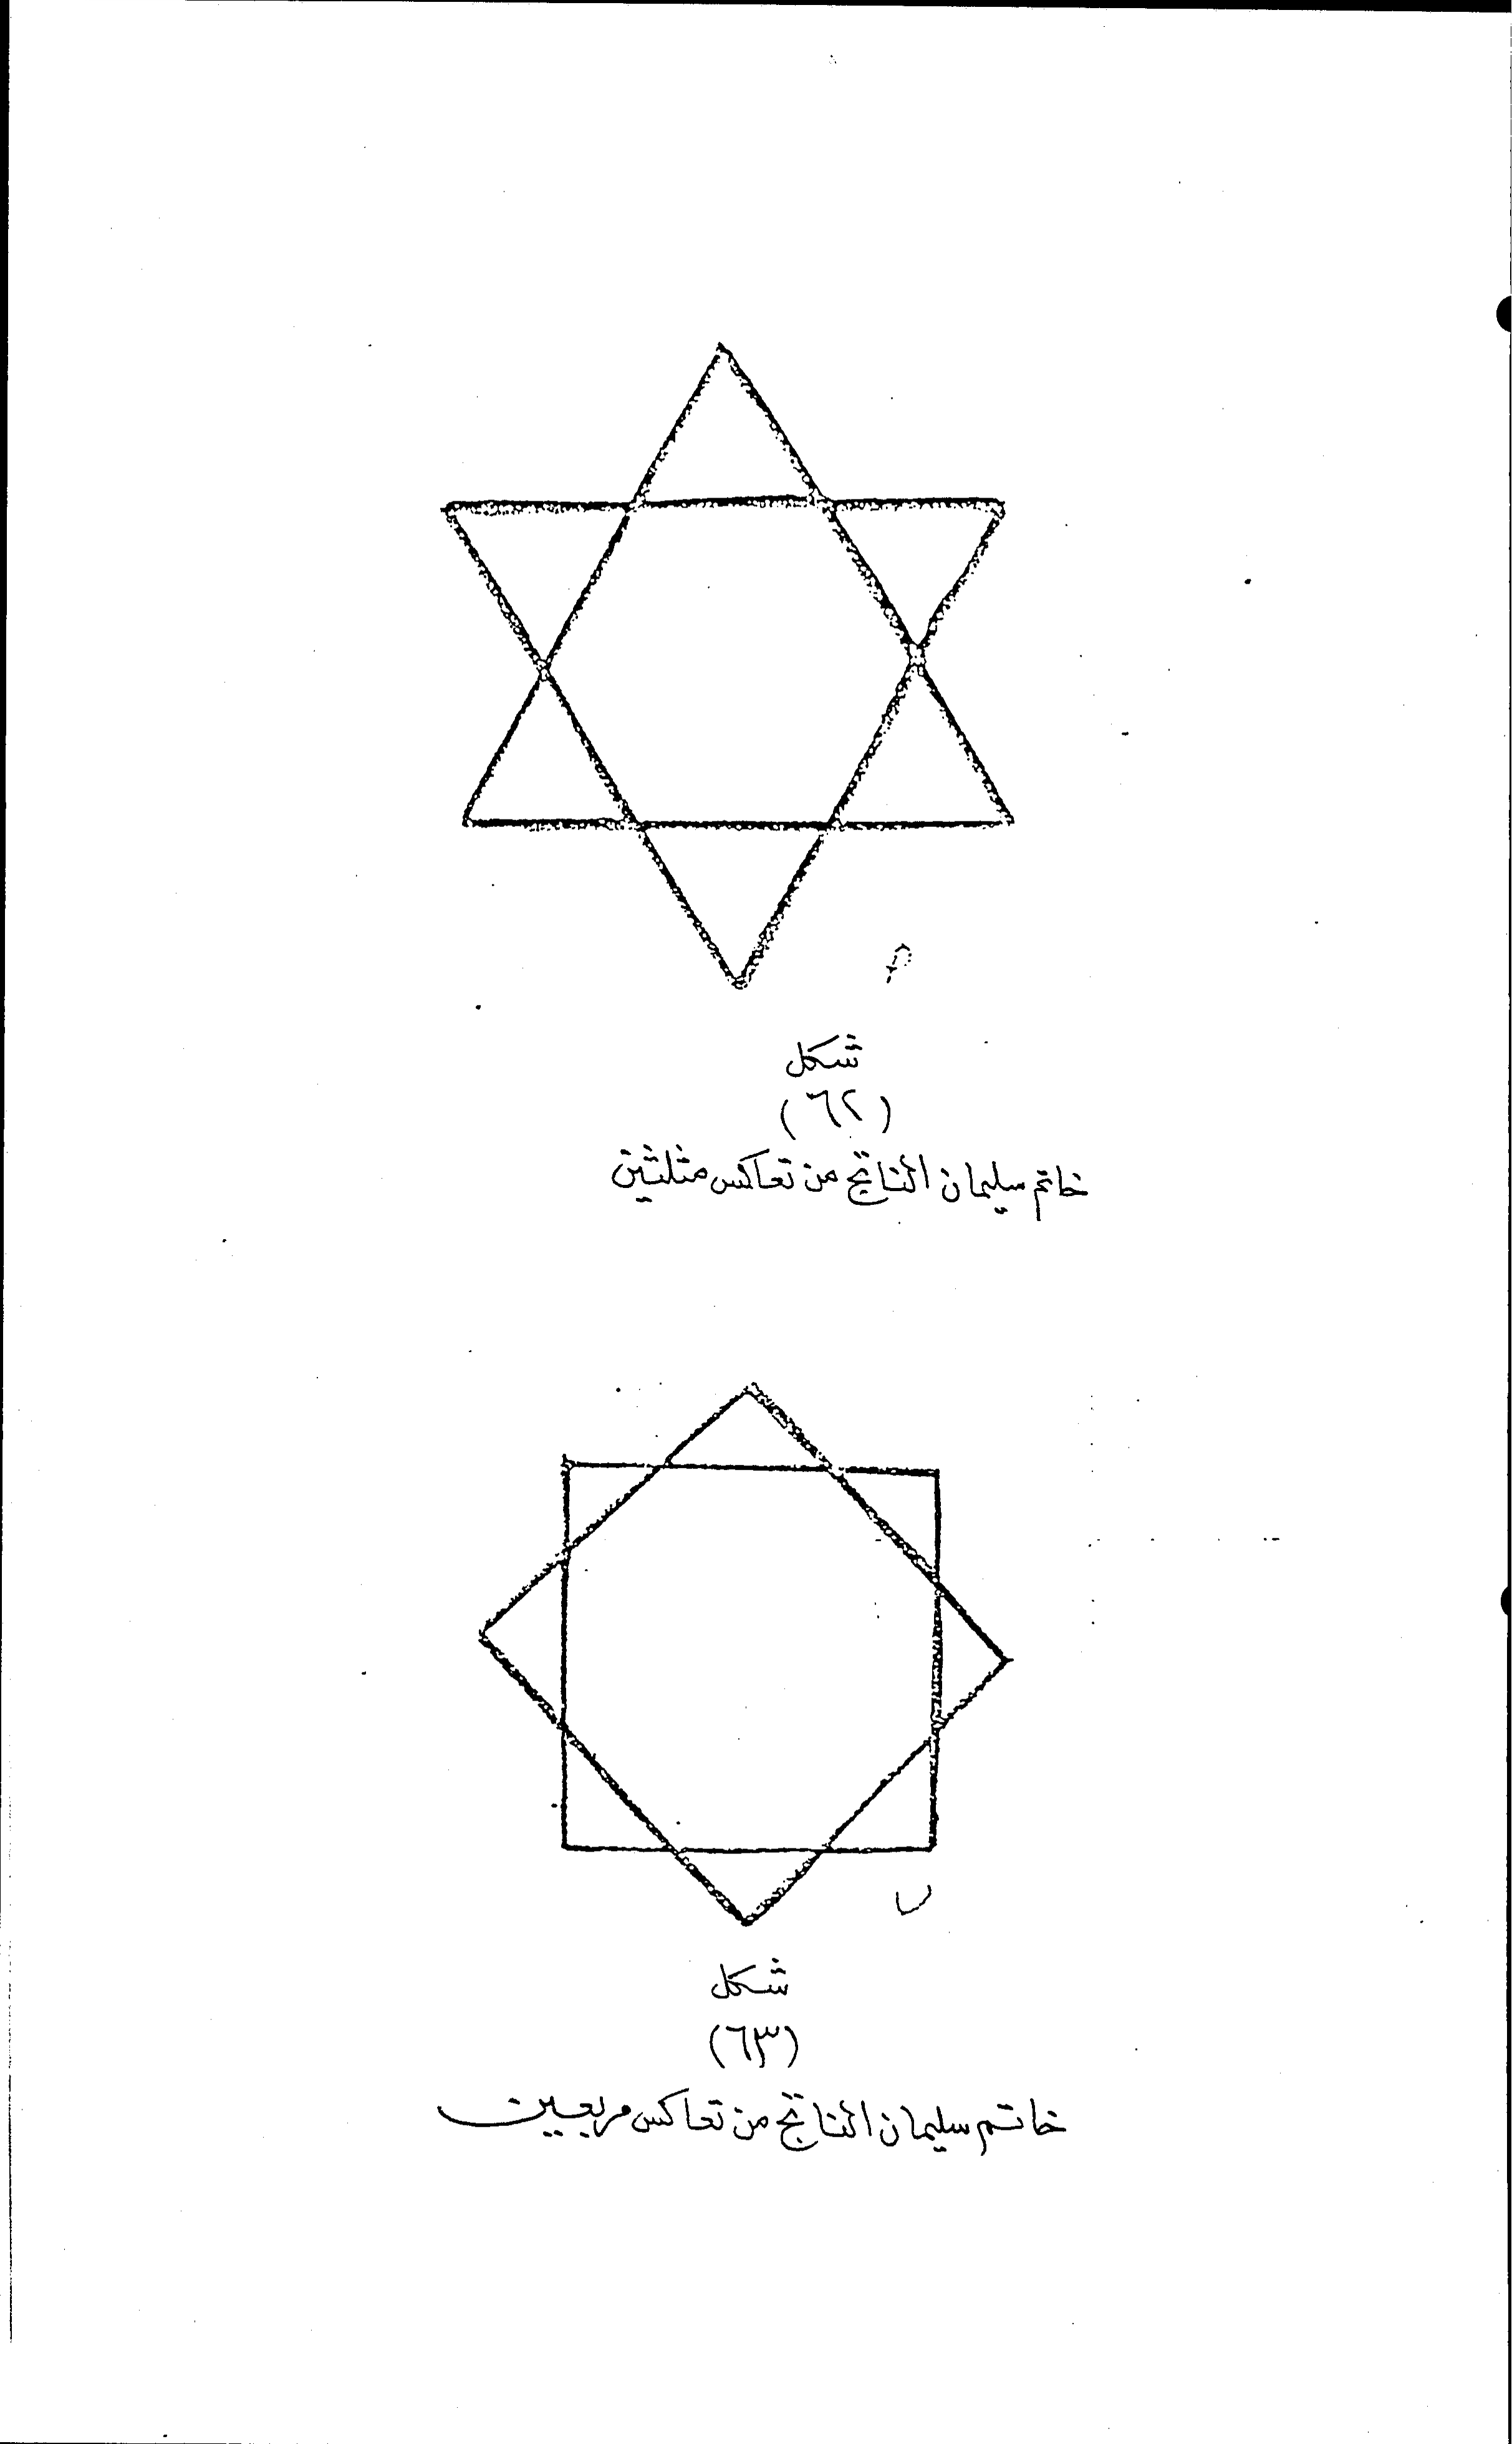 شكل
(٦٢)
خاتم سليمان الناتج من تعاكس مثلثين
شكل
(٦٣)
خاتم سليمان الناتج من تعاكس مربعين